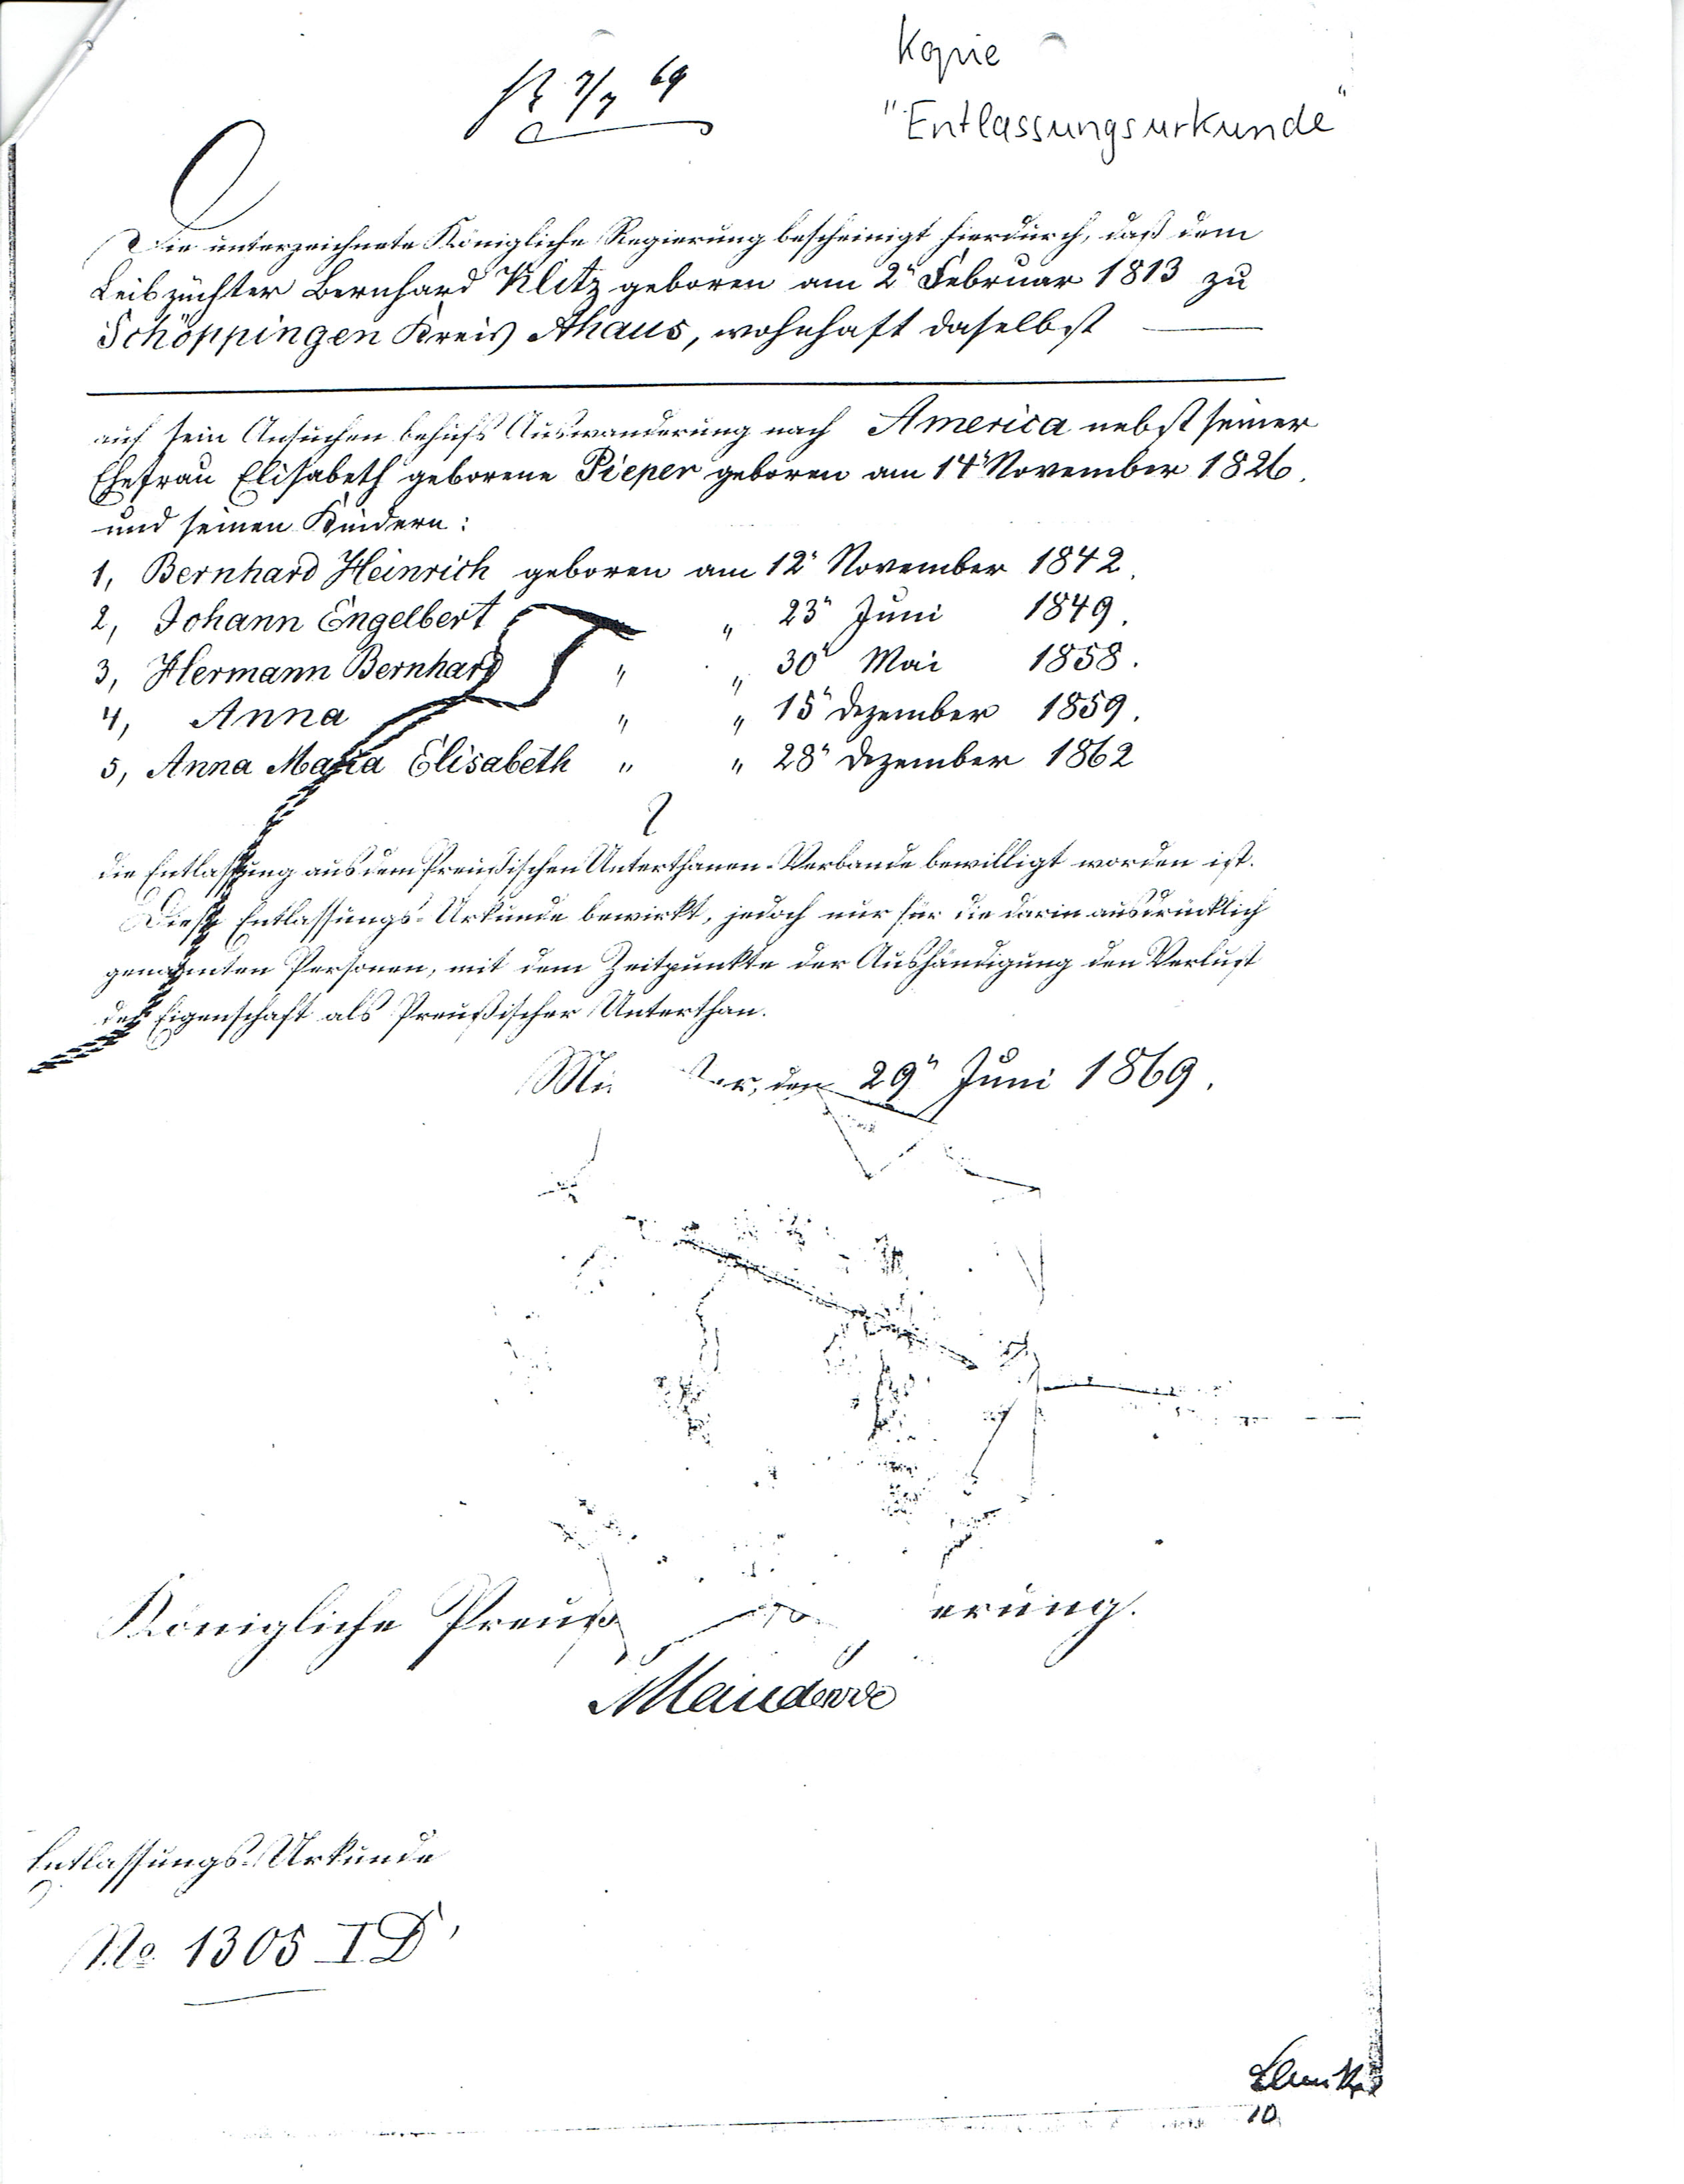 Kopie
"Entlassungsurkunde"
7/7 69
Die unterzeichnete Königliche Regierung bescheinigt hierdurch, daß dem
Leibzüchter Bernhard Klitz geboren am 2" Februar 1813 zu
Schöppingen Kreis Ahaus, wohnhaft daselbst
auf sein Ansuchen behufs Auswanderung nach America nebst seiner
Ehefrau Elisabeth geborene Pieper geboren am 14" November 1826.
und seinen Kindern:
1, Bernhard Heinrich geboren am 12" November 1842.
2, Johann Engelbert " 23" Juni 1849.
3, Hermann Bernhard " " 30" Mai 1858.
4, Anna " " 15" Dezember 1859.
5, Anna Maria Elisabeth " " 28" Dezember 1862
die Entlassung aus dem Preußischen Unterthanen-Verbande bewilligt worden ist.
Diese Entlassungs-Urkunde bewirkt, jedoch nur für die darin ausdrücklich
genannten Personen, mit dem Zeitpunkte der Aushändigung den Verlust
der Eigenschaft als Preußischer Unterthan.
den 29" Juni 1869.
Königliche Preuß erung.
Entlassungs-Urkunde
No. 1305 I D
10